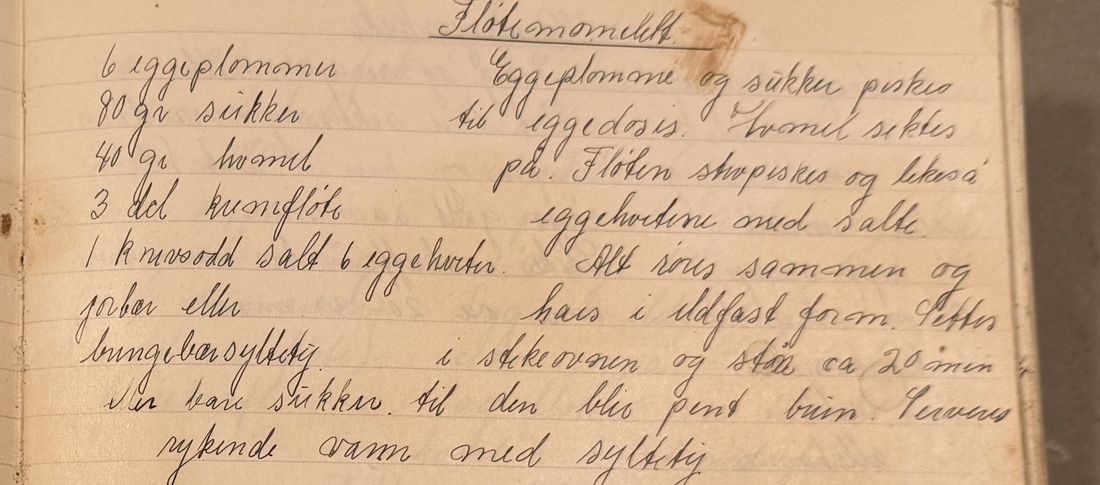 Fløtemomelett.
6 eggeplommer
80 gr sukker
40 gr hvmel
3 del kremfløte
1 knivsodd salt 6 eggehviter.
jorbær eller
bungebærsyltetøj
eller bare sukker.
Eggeplomme og sukker piskes
til eggedosis. Hvmel siktes
på. Fløten stivpiskes og likeså
eggehvitene med salte.
Alt røres sammen og
haes i ildfast form. Settes
i stekeovnen og står ca 20 min
til den blir pent brun. Serveres
rykende varm med syltetøj